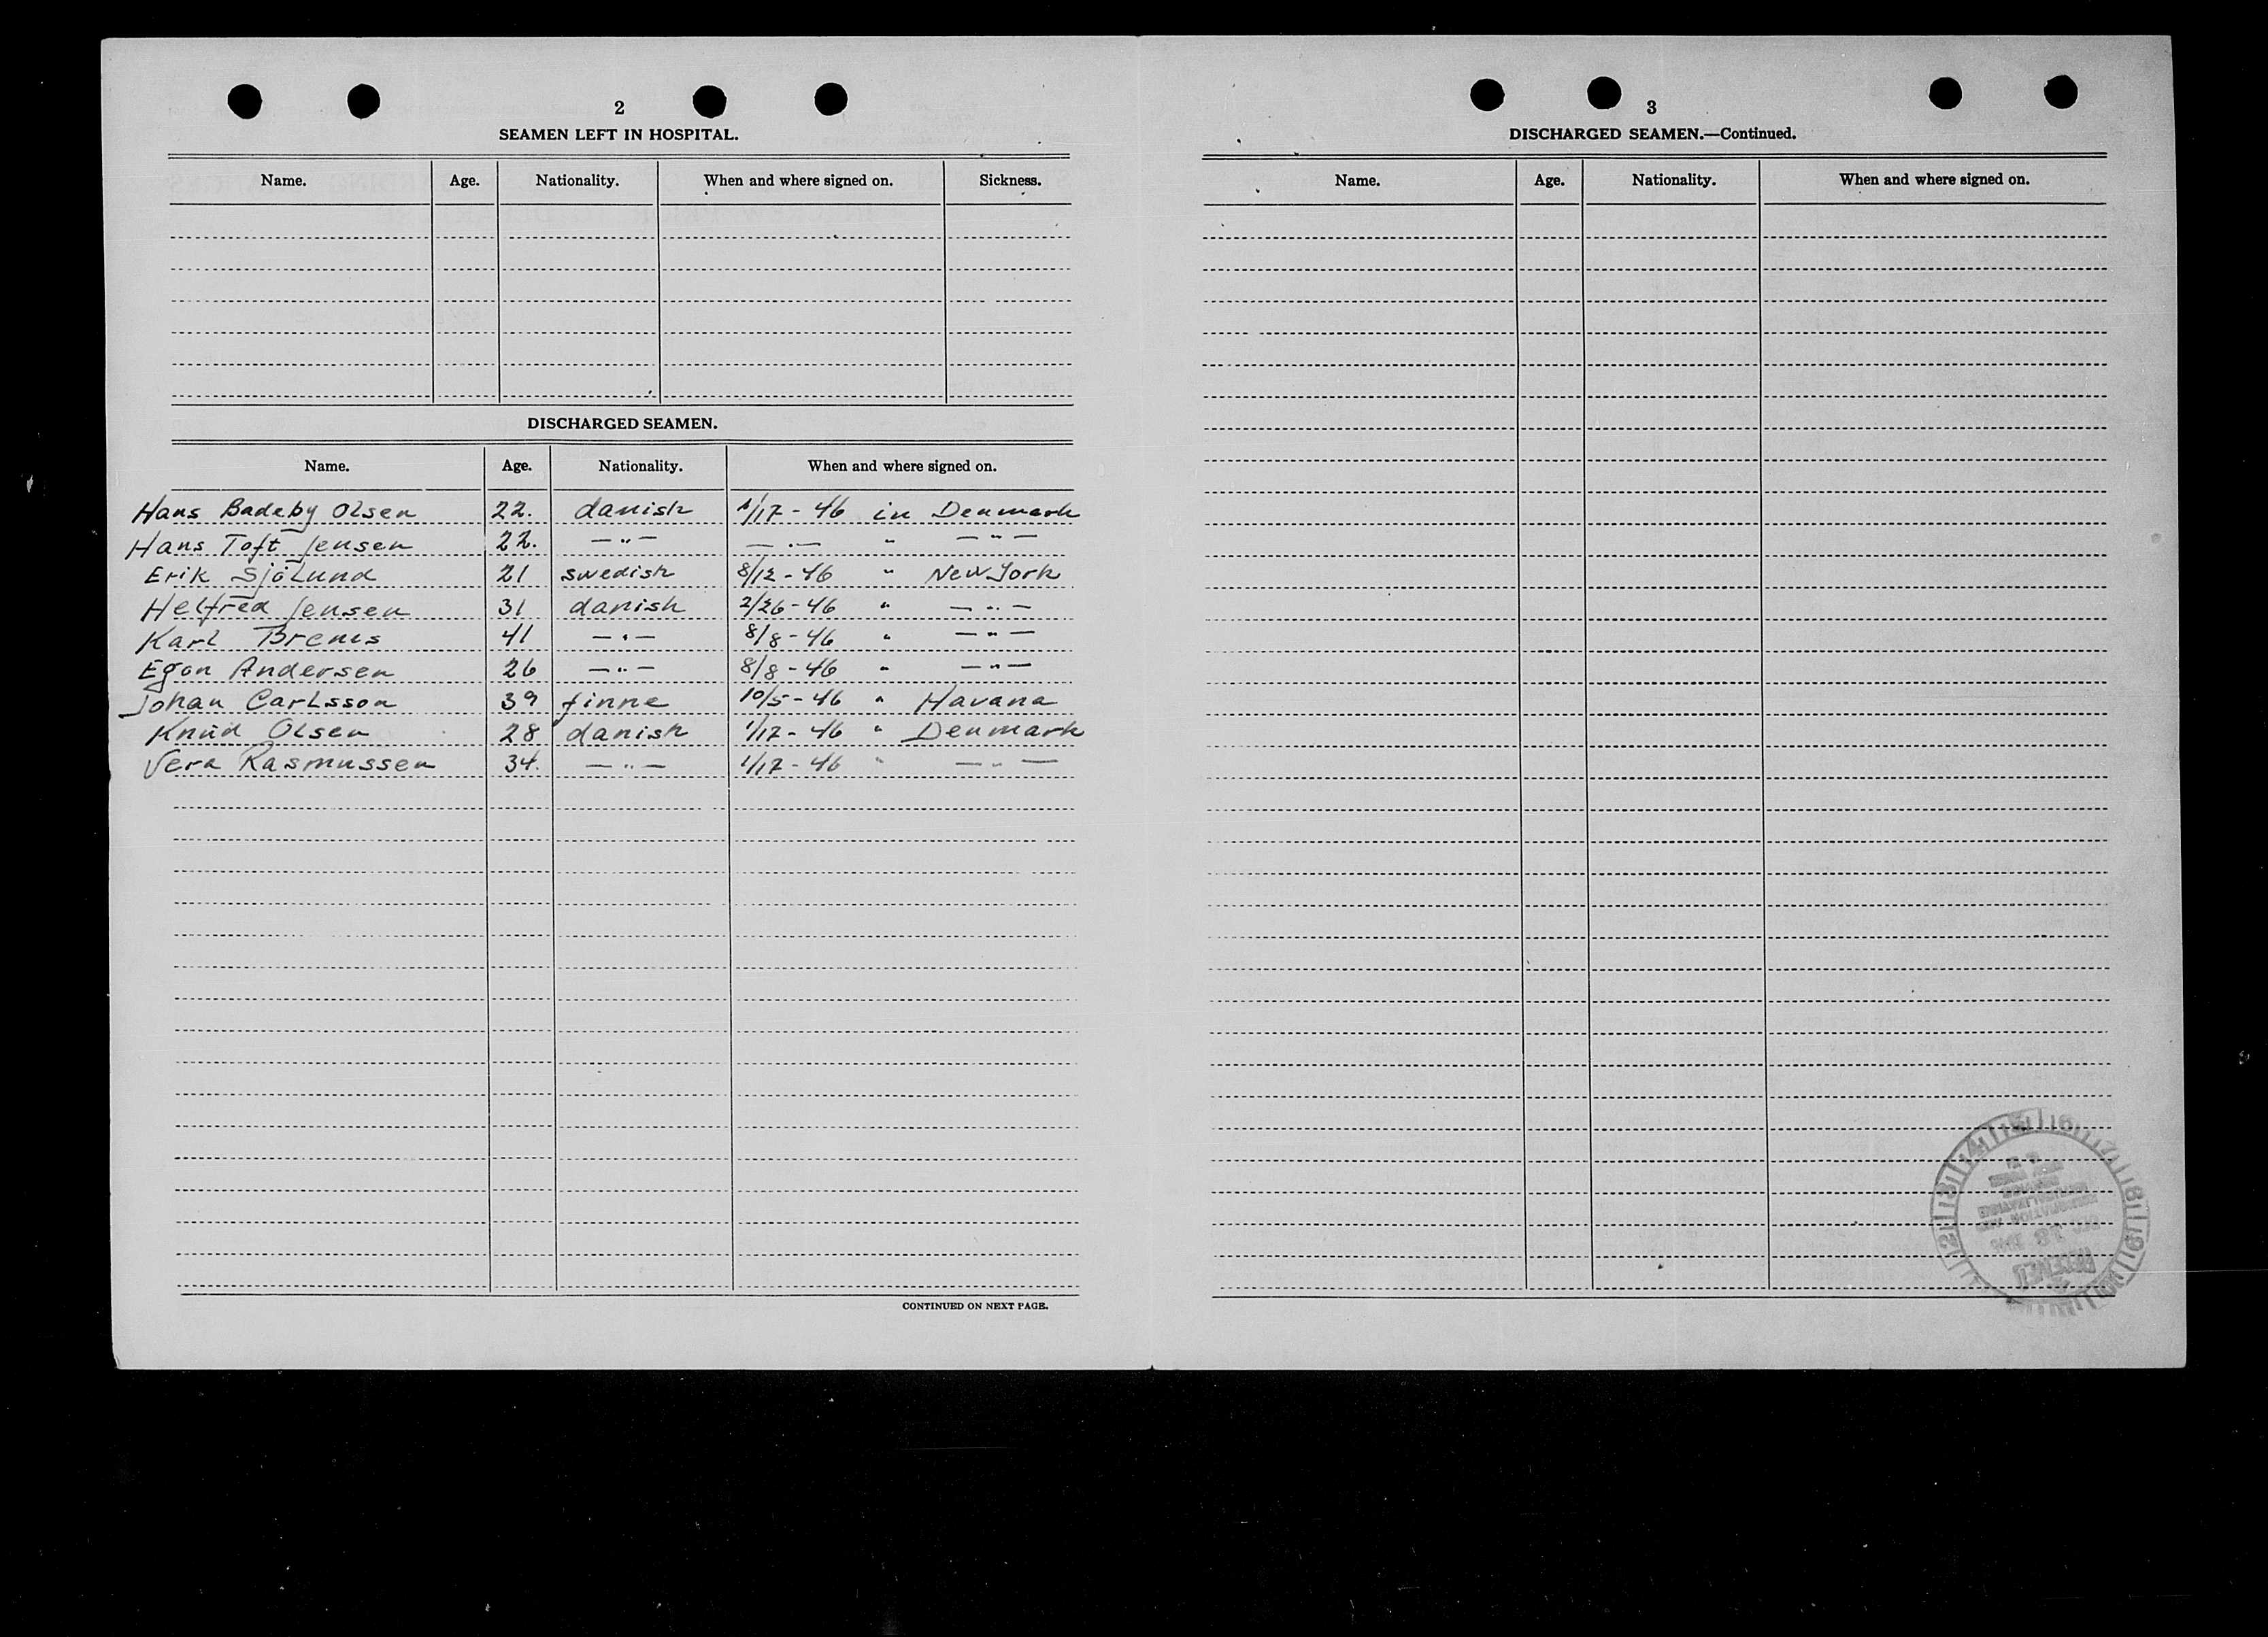 2
SEAMEN LEFT IN HOSPITAL.
Name. Age. Nationality. When and where signed on. Sickness.
DISCHARGED SEAMEN.
Name. Age. Nationality. When and where signed on.
Hans Badeby Olsen 22. danish 1/17-46 in Denmark
Hans Toft Jensen 22. —"— —"— " —"—
Erik Sjölund 21 swedish 8/12-46 " New York
Helfred Jensen 31 danish 2/26-46 " —"—
Karl Brems 41 —"— 8/8-46 " —"—
Egon Andersen 26 —"— 8/8-46 " —"—
Johan Carlsson 39 finne 10/5-46 " Havana
Knud Olsen 28 danish 1/17-46 " Denmark
Vera Rasmussen 34. —"— 1/17-46 " —"—
CONTINUED ON NEXT PAGE.
3
DISCHARGED SEAMEN.—Continued.
Name. Age. Nationality. When and where signed on.
RECEIVED